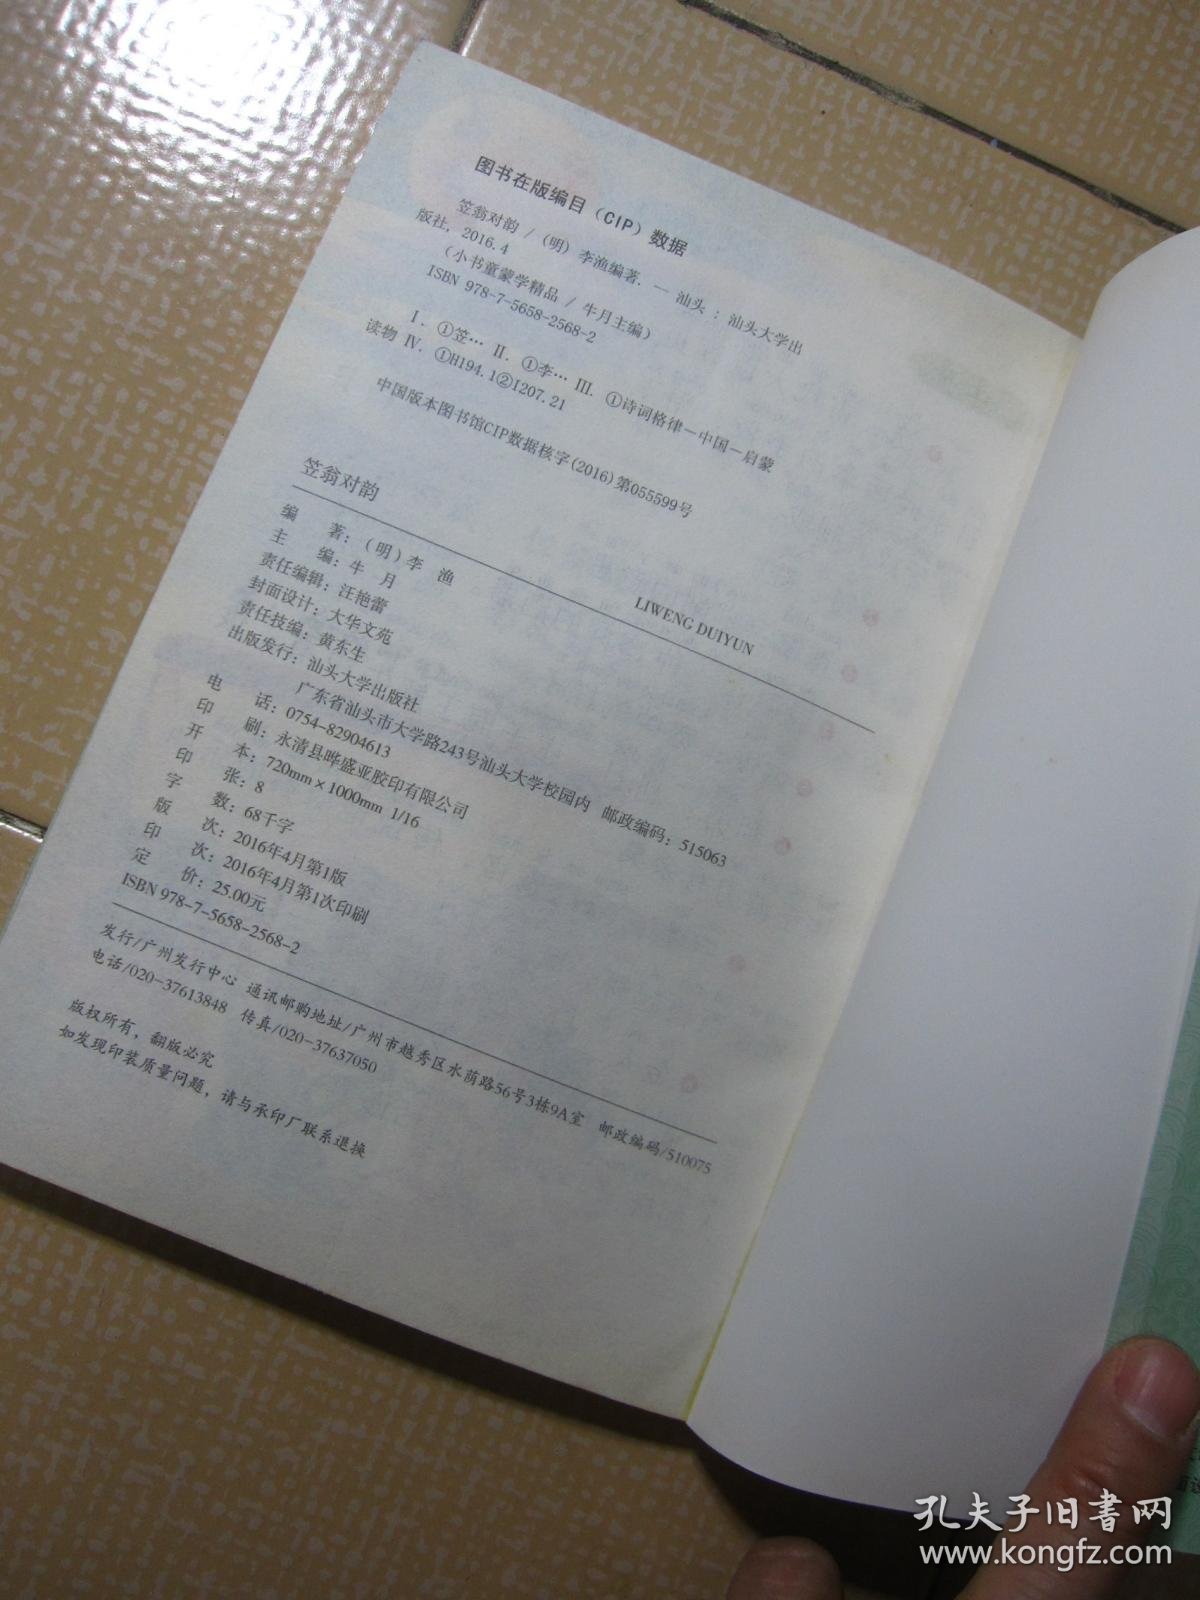 图书在版编目（CIP）数据
笠翁对韵 /（明）李渔编著. — 汕头 : 汕头大学出
版社, 2016.4
（小书童蒙学精品 / 牛月主编）
ISBN 978-7-5658-2568-2
Ⅰ. ①笠… Ⅱ. ①李… Ⅲ. ①诗词格律－中国－启蒙
读物 Ⅳ. ①H194.1②I207.21
中国版本图书馆CIP数据核字(2016)第055599号
笠翁对韵
LIWENG DUIYUN
编 著：(明) 李 渔
主 编：牛 月
责任编辑：汪艳蕾
封面设计：大华文苑
责任技编：黄东生
出版发行：汕头大学出版社
广东省汕头市大学路243号汕头大学校园内 邮政编码：515063
电 话：0754-82904613
印 刷：永清县晔盛亚胶印有限公司
开 本：720mm×1000mm 1/16
印 张：8
字 数：68千字
版 次：2016年4月第1版
印 次：2016年4月第1次印刷
定 价：25.00元
ISBN 978-7-5658-2568-2
发行/广州发行中心 通讯邮购地址/广州市越秀区水荫路56号3栋9A室 邮政编码/510075
电话/020-37613848 传真/020-37637050
版权所有，翻版必究
如发现印装质量问题，请与承印厂联系退换
孔夫子旧书网
www.kongfz.com